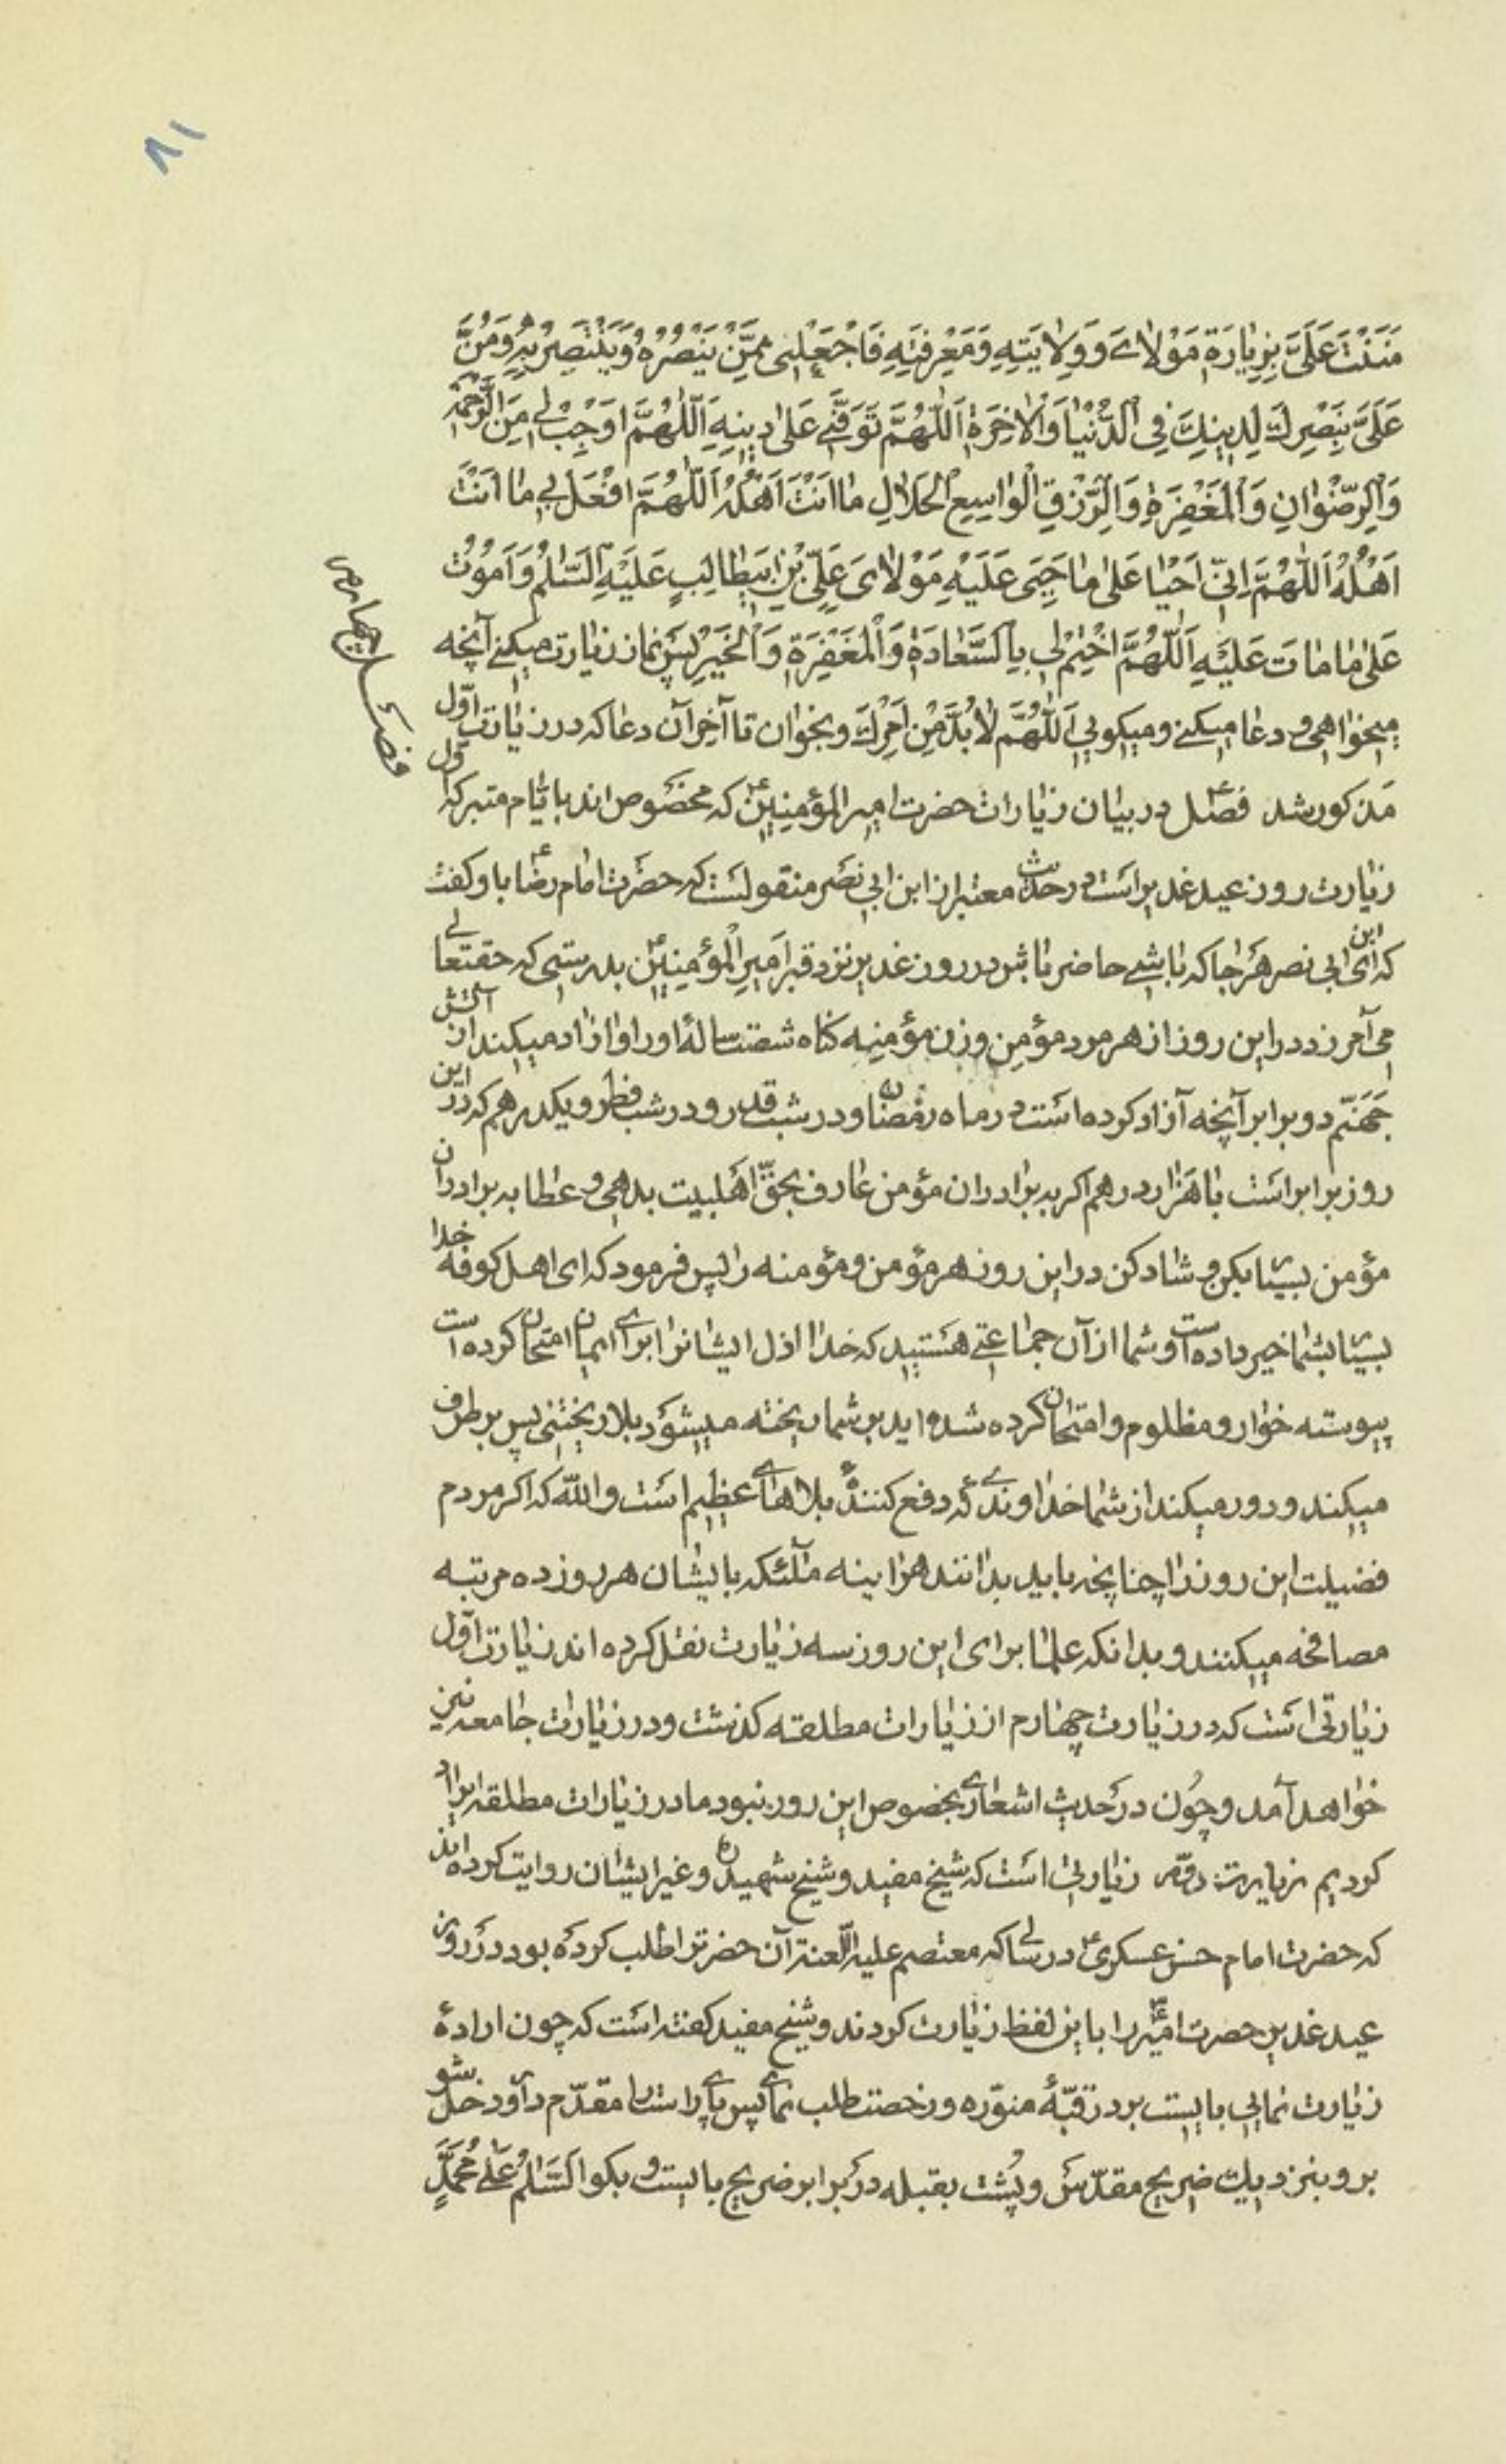 ۸۱
مَنَنْتَ عَلَیَّ بِزِیٰارَةِ مَوْلاٰیَ وَوِلاٰیَتِهِ وَمَعْرِفَتِهِ فَاجْعَلْنِی مِمَّنْ یَنْصُرُهُ وَیَنْتَصِرُ بِهِ وَمُنَّ
عَلَیَّ بِنَصْرِكَ لِدینِكَ فِی الدُّنْیٰا وَالْاٰخِرَةِ اَللّٰهُمَّ تَوَفَّنی عَلیٰ دینِهِ اَللّٰهُمَّ اَوْجِبْ لی مِنَ الرَّحْمَةِ
وَالرِّضْوٰانِ وَالْمَغْفِرَةِ وَالرِّزْقِ الْوٰاسِعِ الْحَلاٰلِ مٰا اَنْتَ اَهْلُهُ اَللّٰهُمَّ افْعَلْ بی مٰا اَنْتَ
اَهْلُهُ اَللّٰهُمَّ اِنّی اَحْیٰا عَلیٰ مٰا حَیِیَ عَلَیْهِ مَوْلاٰیَ عَلِیِّ بْنِ ابیطٰالِبٍ عَلَیْهِ السَّلٰمُ وَاَمُوتُ
عَلیٰ مٰا مٰاتَ عَلَیْهِ اَللّٰهُمَّ اخْتِمْ لی بِالسَّعٰادَةِ وَالْمَغْفِرَةِ وَالْخَیْرِ پس نماز زیٰارت میکنی آنچه
میخوٰاهی و دعٰا میکنی و میکویی اَللّٰهُمَّ لاٰ بُدَّ مِنْ اَمْرِكَ و بخوٰان تا آخِر آن دعا که در زیٰارت اوّل
فصل چهارم
مَذکور شد فصل در بیٰان زیٰارات حضرت امیر المؤمنینؑ که مخصُوص اند بایّٰام متبرکه اول
زیٰارت روز عید غدیر اسَت در حدیث معتبر از ابن ابی نصَر منقولسَت که حضَرت امٰام رضاؑ باو کفت
که ای ابن ابی نصر هَر جٰا که بٰاشی حاضر بٰاش در روز غدیر نزد قبر اَمیرِ الْمؤمنینؑ بدرستی که حقتعالی
می آمرزد در این روز از هر مرد مؤمن وزن مؤمنه کنٰاه شصت سٰالهٔ او را و ازٰاد میکند از آتش
جَهَنّم دو برابر آنچه آزاد کرده اسَت در مٰاه رمَضٰان و در شب قدر و در شب فطر و یکدرهم که در این
روز برابر اسَت بٰا هَزٰار درهم اکر به برٰادران مؤمن عٰارف بحقّ اهَلبیت بدهی و عطا به برادران
مؤمن بسیٰار بکن و شٰاد کن در این روز هر مؤمن و مؤمنه را پس فرمود که ای اهل کوفه خدا
بسیٰار بشمٰا خیر داده است و شمٰا از آن جمٰاعتی هسَتید که خدٰا اذل ایشٰانرٰا برٰای ایمٰان امتحان کرده است
پیوسته خوٰار و مظلوم و امتحان کرده شده اید بر شما ریخته میشوَد بلا ریختنی پس بر طرف
میکند و دور میکند از شمٰا خدٰاوندی که دفع کنندهٔ بلاهٰای عظیم اسَت و اللّه که اکر مردم
فضیلت این روز را چنٰانچه باید بدٰانند هرٰاینه مٰلآئکه بٰایشٰان هر روز ده مرتبه
مصافحه میکنند و بدٰانکه علمٰا برٰای این روز سه زیٰارت نقل کرده اند زیٰارت اوّل
زیٰارتی اسَت که در زیٰارت چهٰارم از زیٰارات مطلقه کذشت و در زیٰارات جٰامعه نیز
خوٰاهد آمد و چُون در حدیث اشعٰاری بخصوص این روز نبود ما در زیٰارات مطلقه ایراد
کردیم زیارت دوّم زیٰارتی اسَت که شیخ مفید و شیخ شهید و غیر ایشان روایت کرده اند
که حضرت امٰام حسن عسکریؑ در سٰالی که معتصم علیه الّلعنة آن حضرترٰا طلب کرده بود در روز
عید غدیر حضرت امیرؑ را باین لفظ زیٰارت کردند و شیخ مفید کفته اسَت که چون ارادهٔ
زیٰارت نمٰایی بایست بر در قبّهٔ منوّره و رخصت طلب نمٰای پس پٰای رٰاست را مقدّم دار و داخل شو
برو بنزدیك ضریح مقدّس و پُشت بقبله در برٰابر ضریح بایست و بکو اَلسَّلٰمُ عَلیٰ مُحَمَّدٍ